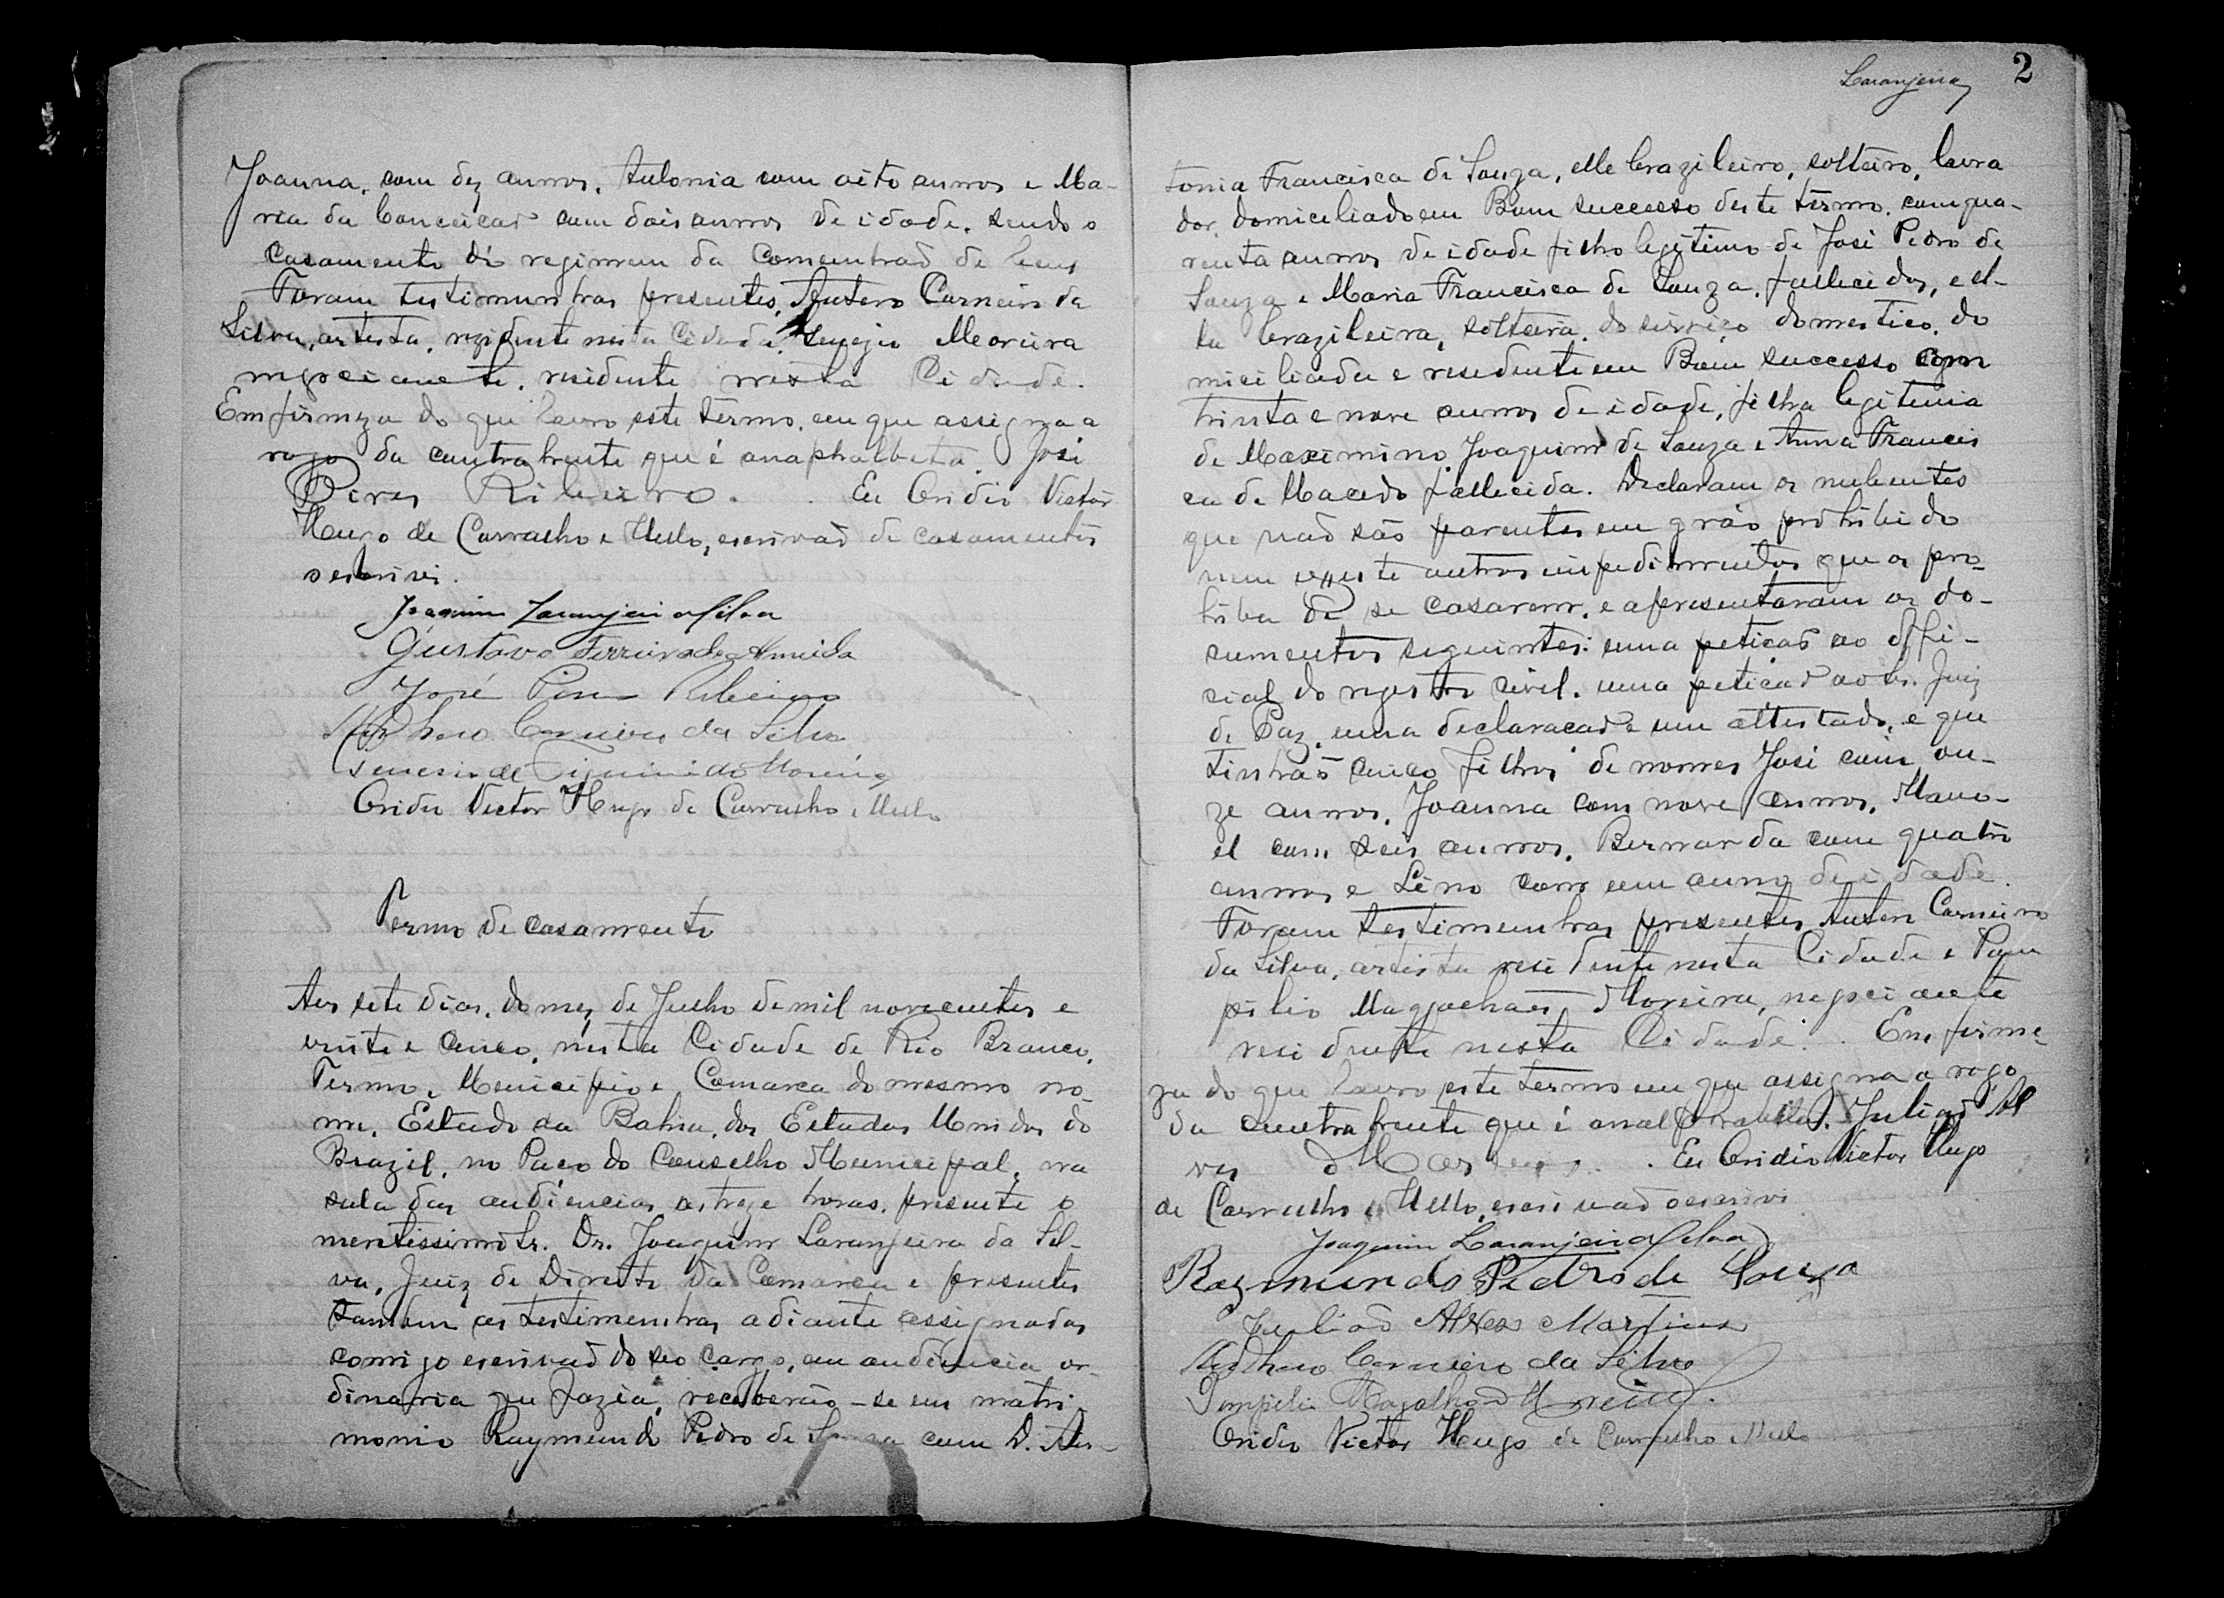 Joanna, com dez annos, Antonia com oito annos e Ma-
ria da Conceicaõ com dois annos de idade. sendo o
casamento do regimem da Comenhaõ de bens
Foram testimunhas presentes, Antero Carneiro da
Silva, artista, rezidente nesta Cidade, Moreira
negociante, residente nesta Cidade.
Em firmeza do que lavro este termo, em que assigna a
rogo da contrahente que é anaphalbeta. José
Pires Ribeiro. Eu Ovidio Victor
Hugo de Carvalho e Mello, escrivaõ de casamentos
o escrivi.
Joaquim Laranjeira Silva
Gustavo Ferreira de Almeida
José Pires Ribeiro
Anthero Carneiro da Silva
Moreira
Ovidio Victor Hugo de Carvalho e Mello
Termo de casamento
Aos sete dias, do mez de Julho de mil novecentos e
vinte e cinco, nesta Cidade de Rio Branco,
Termo, Municipio e Comarca do mesmo no-
me, Estado da Bahia, dos Estados Unidos do
Brazil, no Paço do Conselho Municipal, na
sala das audiencias, as treze horas, presente o
meritissimo Sr. Dr. Joaquim Laranjeira da Sil-
va, Juiz de Direito da Comarca e presentes
tambem as testimunhas adiante assignadas
comigo escrivaõ do seo cargo, em audiencia or-
dinaria que fazia, receberaõ-se em matri-
monio Raymundo Pedro de Souza com D. An-
Laranjeira 2
tonia Francisca de Souza, elle brazileiro, solteiro, lavra
dor, domiciliado em Bom successo deste termo, com qua-
renta annos de idade filho legitimo de José Pedro de
Souza e Maria Francisca de Souza, fallecidos, e el-
la brazileira, solteira, do serviço domestico, do
miciliada e residente em Bom successo com
trinta e nove annos de idade, filha legitima
de Maximino Joaquim de Souza e Anna Francis
ca de Macedo fallecida. Declaram os nubentes
que naõ saõ parentes em gráo prohibido
nem existe outros impedimentos que os pro-
hiba de se casarem, e apresentaram os do-
cumentos seguintes: uma petiçaõ ao offi-
cial do registro civil, uma petiçaõ ao Sr. Juiz
de Paz, uma declaracaõ e um attestado, e que
tinhaõ cinco filhos de nomes José com on-
ze annos, Joanna com nove annos, Mano-
el com seis annos, Bernarda com quatro
annos e Lino com um anno de idade.
Foram testimunhas presentes Antero Carneiro
da Silva, artista residente nesta Cidade e Pom
pilio Magalhaes Moreira, negociante
residente nesta Cidade. Em firme-
za do que lavro este termo em que assigna a rogo
da contrahente que é analphabeta. Juliaõ Al
ves Martins. Eu Ovidio Victor Hugo
de Carvalho e Mello, escrivaõ o escrivi
Joaquim Laranjeira Silva
Raymundo Pedro de Souza
Juliaõ Alves Martins
Anthero Carneiro da Silva
Pompilio Magalhães Moreira.
Ovidio Victor Hugo de Carvalho e Mello